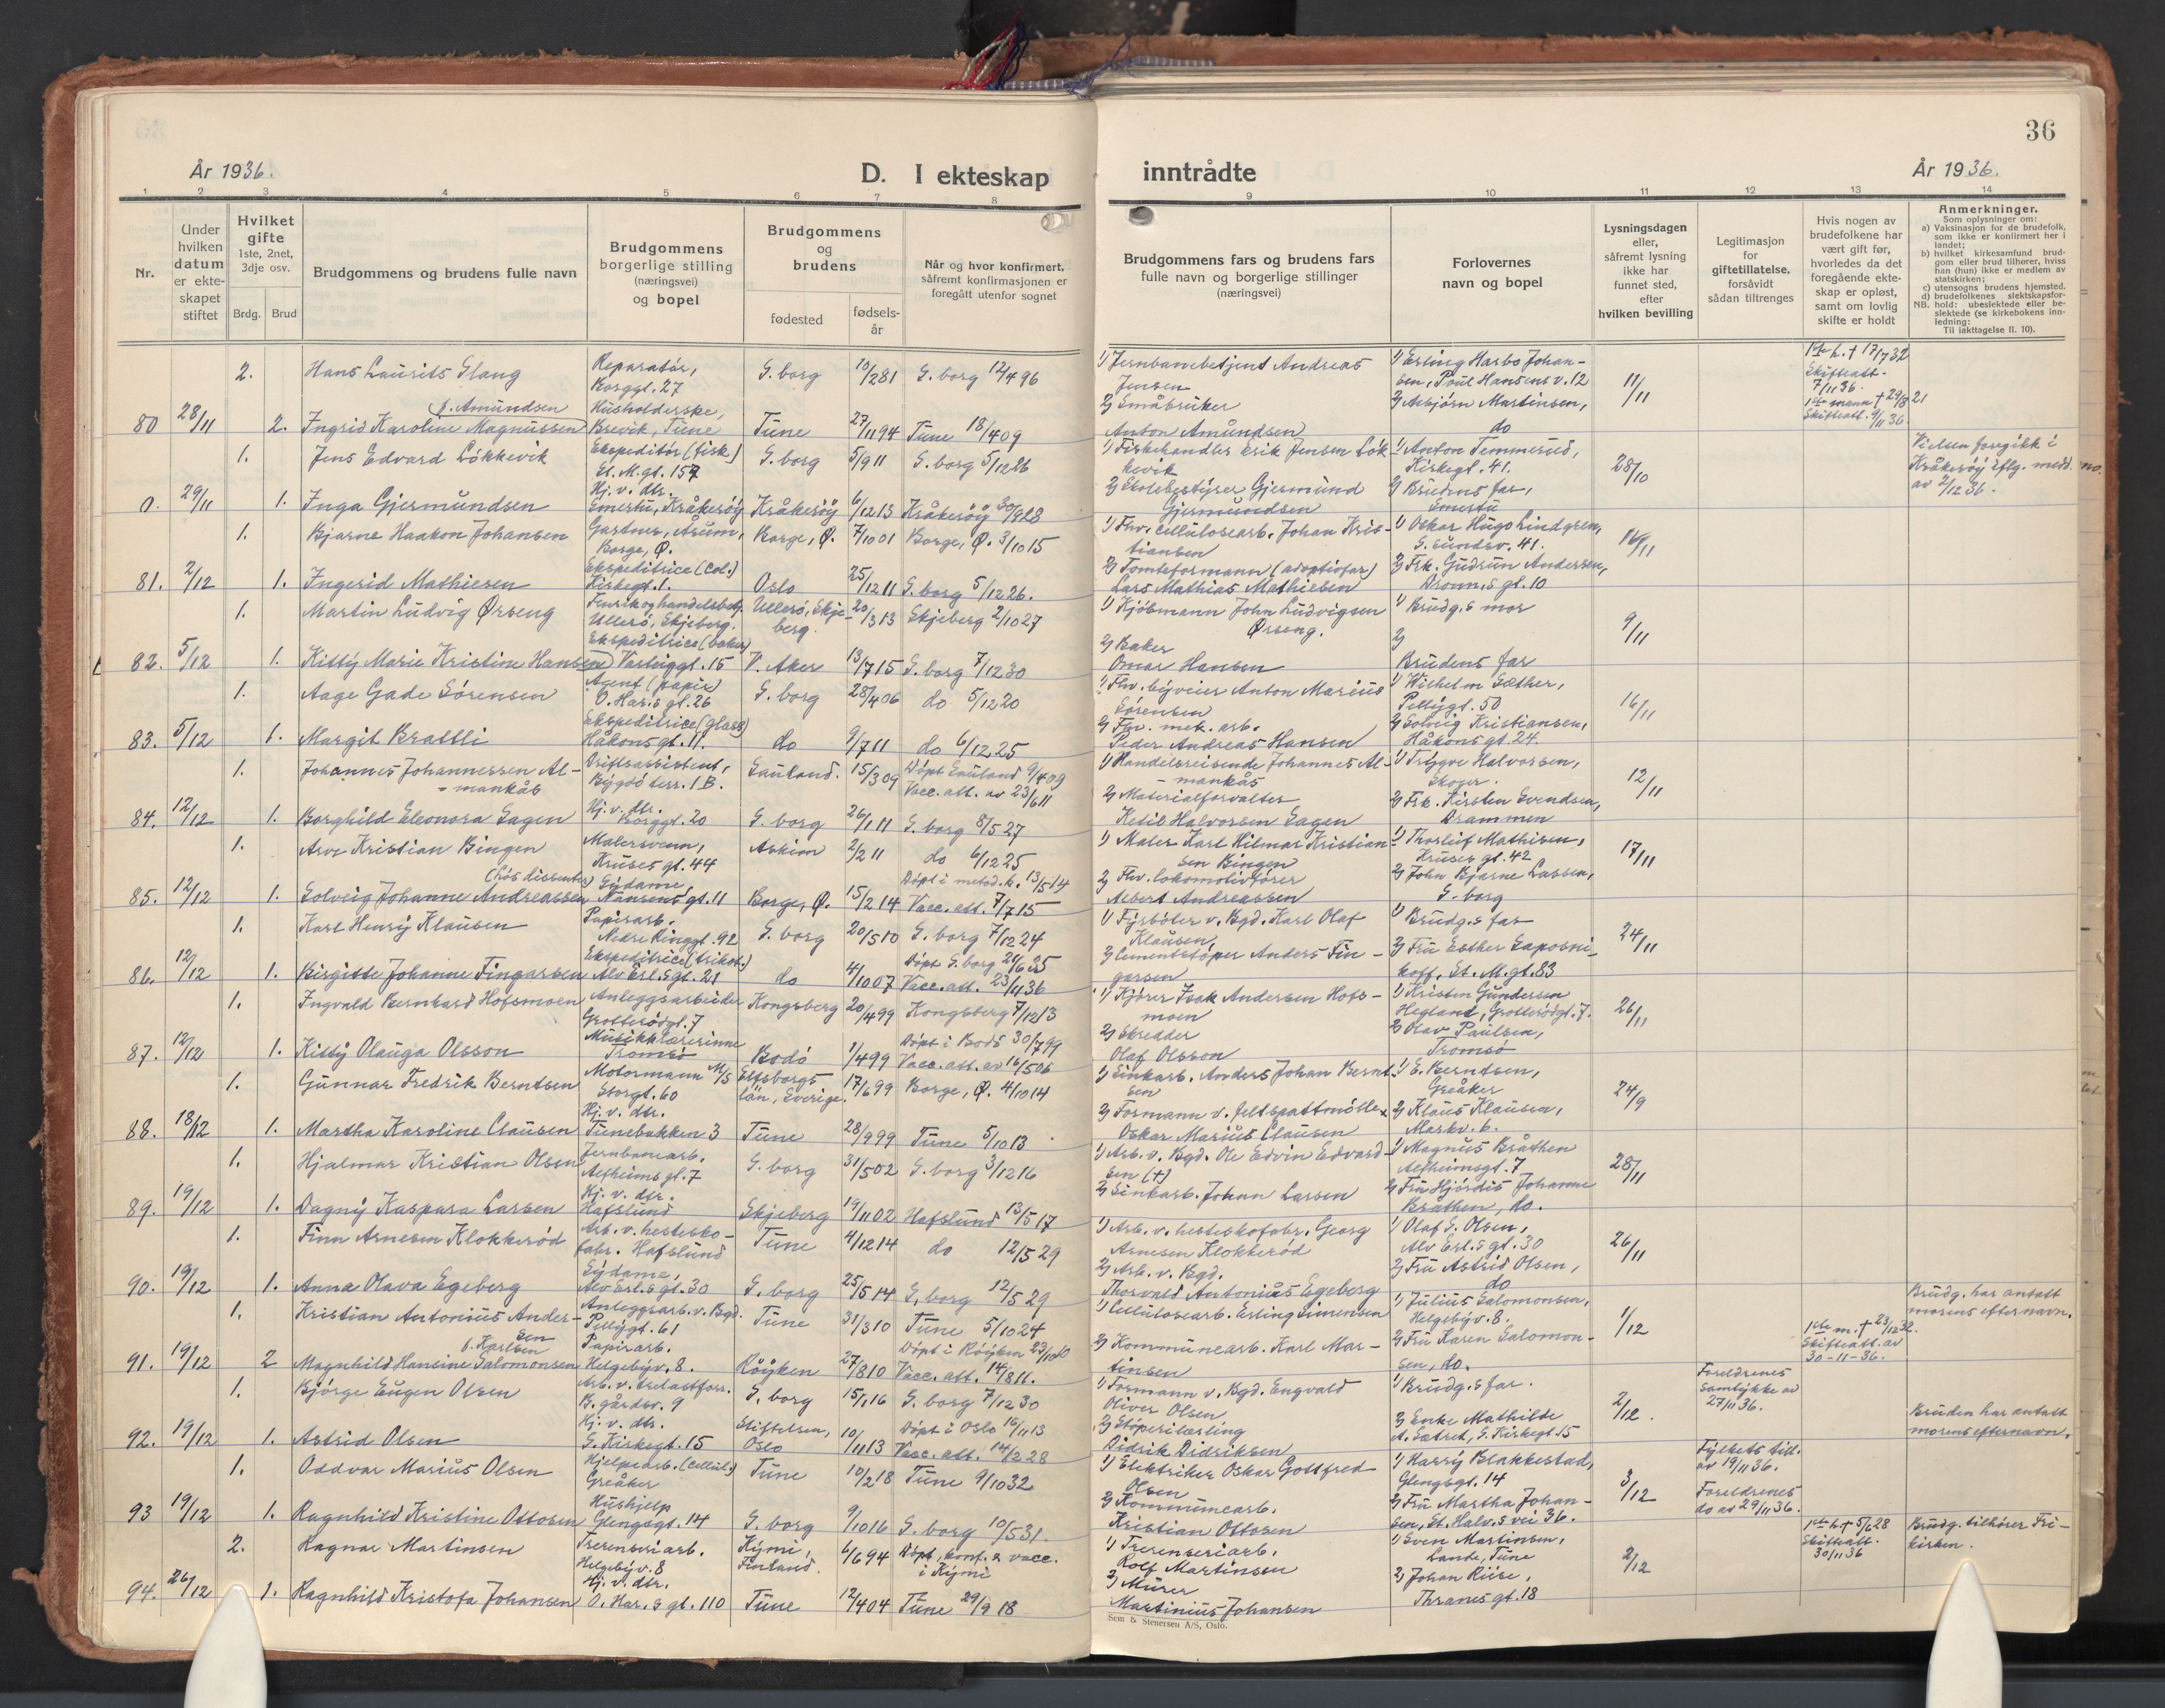 36
År 1936.
D. I ekteskap
inntrådte
År 1936.
1 2 3 4 5 6 7 8 9 10 11 12 13 14
Nr.
Under hvilken datum er ekteskapet stiftet
Hvilket gifte
1ste, 2net, 3dje osv.
Brdg. Brud
Brudgommens og brudens fulle navn
Brudgommens borgerlige stilling (næringsvei) og bopel
Brudgommens og brudens
fødested
fødsels-år
Når og hvor konfirmert, såfremt konfirmasjonen er foregått utenfor sognet
Brudgommens fars og brudens fars fulle navn og borgerlige stillinger (næringsvei)
Forlovernes navn og bopel
Lysningsdagen eller, såfremt lysning ikke har funnet sted, efter hvilken bevilling
Legitimasjon for giftetillatelse, forsåvidt sådan tiltrenges
Hvis nogen av brudefolkene har vært gift før, hvorledes da det foregående ekteskap er opløst, samt om lovlig skifte er holdt
Anmerkninger.
Som oplysninger om:
a) Vaksinasjon for de brudefolk, som ikke er konfirmert her i landet;
b) hvilket kirkesamfund brudgom eller brud tilhører, hviss han (hun) ikke er medlem av statskirken;
c) utensogns brudens hjemsted.
d) brudefolkenes slektskapsforhold: ubeslektede eller beslektede (se kirkebokens innledning:
NB.
Til iakttagelse II. 10).
2. Hans Laurits Glang Reparatør, Borggt. 27 G. borg 10/2 81 G. borg 12/4 96 1) Jernbanebetjent Andreas Jensen 1) Erling Harbo Johansen, Poul Hansens v. 12 11/11 1ste h. † 17/7 32 Skifteatt. 7/11 36.
80 28/11 2. Ingrid Karoline Magnussen f. Amundsen Husholderske, Brevik, Tune Tune 27/11 94 Tune 18/4 09 2) Småbruker Anton Amundsen 2) Asbjørn Martinsen, do 1ste mann † 29/8 21 Skifteatt. 9/11 36.
1. Jens Edvard Løkkevik Ekspeditør (fisk) St. M. gt. 157 G. borg 5/9 11 G. borg 5/12 26 1) Fiskehandler Erik Jensen Løkkevik 1) Anton Temmerud, Kirkegt. 41. 28/10 Vielsen foregikk i Kråkerøy iflg. medd. av 2/12 36.
0. 29/11 1. Inga Gjermundsen Hj. v. dtr. Smertu, Kråkerøy Kråkerøy 6/12 13 Kråkerøy 30/9 28 2) Skolebestyrer Gjermund Gjermundsen 2) Brudens far, Smertu
1. Bjarne Haakon Johansen Gartner, Årum, Borge, Ø. Borge, Ø. 7/10 01 Borge, Ø. 3/10 15 1) Fhv. cellulosearb. Johan Kristiansen 1) Oskar Hugo Lindgren, G. Sundsv. 41. 16/11
81. 2/12 1. Ingerid Mathiesen Ekspeditrice (Col.) Kirkegt. 1. Oslo 25/12 11 G. borg 5/12 26. 2) Tomteformann (adoptivfar) Lars Mathias Mathiesen 2) Frk. Gudrun Andersen, Dronn.s gt. 10
1. Martin Ludvig Ørseng Fenrik og handelsbetj. Ullerø, Skjeberg. Ullerø, Skjeberg. 20/3 13 Skjeberg 2/10 27 1) Kjøbmann John Ludvigsen Ørseng. 1) Brudg.s mor 9/11
82. 5/12 1. Kitty Marie Kristine Hansen Ekspeditrice (baker) Varteiggt. 15 V. Aker 13/7 15 G. borg 7/12 30 2) Baker Omar Hansen 2) Brudens far
1. Aage Gade Sørensen Agent (papir) O. Har.s gt. 26 G. borg 28/4 06 do 5/12 20 1) Fhv. byveier Anton Marius Sørensen 1) Wilhelm Sæther, Pellygt. 50 16/11
83. 5/12 1. Margit Brattli Ekspeditrice (glass) Håkonsgt. 11. do 9/7 11 do 6/12 25 2) Fhv. mek. arb. Peder Andreas Hansen 2) Solveig Kristiansen, Håkonsgt. 24.
1. Johannes Johannessen Almankås Driftsassistent, Bygdø terr. 1 B. Sauland. 15/3 09 Døpt Sauland 9/4 09 Vacc. att. av 23/6 11 1) Handelsreisende Johannes Almankås 1) Trygve Halvorsen, Skoger. 12/11
84. 12/12 1. Borghild Eleonora Sagen Hj. v. dtr. Borggt. 20 G. borg 26/1 11 G. borg 8/5 27 2) Materialforvalter Ketil Halvorsen Sagen 2) Frk. Kirsten Svendsen, Drammen
1. Arve Kristian Bingen Malersvenn, Kruses gt. 44 Askim 2/2 11 do 6/12 25 1) Maler Karl Hilmar Kristiansen Bingen 1) Thorleif Mathisen, Kruses gt. 42 17/11
85. 12/12 1. Solveig Johanne Andreassen (hos dissenter) Sydame, Nansens gt. 11 Borge, Ø. 15/2 14 Døpt i metod. k. 13/5 14 Vacc. att. 7/7 15 2) Fhv. lokomotivfører Albert Andreassen 2) John Bjarne Larsen, G. borg
1. Karl Henry Klausen Papirarb. Nedre Ringgt. 92 G. borg 20/5 10 G. borg 7/12 24 1) Fyrbøter v. Bgd. Karl Olaf Klausen, 1) Brudg.s far 24/11
86. 12/12 1. Birgitte Johanne Fingarsen Ekspeditrice (trikot.) Alv Erl.s gt. 21 do 4/10 07 Døpt G. borg 21/6 25 Vacc. att. 23/11 36 2) Cementstøper Anders Fingarsen 2) Fru Esther Saposnikoff, St. M. gt. 83
1. Ingvald Bernhard Hofsmoen Anleggsarbeider Grotterødgt. 7 Kongsberg 20/4 99 Kongsberg 7/12 13 1) Kjører Isak Andersen Hofsmoen 1) Kristen Gundersen Hegland, Grotterødgt. 7. 26/11
87. 12/12 1. Kitty Olauga Olsson Musikklærerinne Tromsø Bodø 1/4 99 Døpt i Bodø 30/7 99 Vacc. att. av 16/5 06 2) Skredder Olaf Olsson 2) Olav Paulsen, Tromsø
1. Gunnar Fredrik Berntsen Motormann M/S Storgt. 60 Elfsborgs län, Sverige. 17/6 99 Borge, Ø. 4/10 14 1) Sinkarb. Anders Johan Berntsen 1) E. Berntsen, Greåker 24/9
88. 18/12 1. Martha Karoline Clausen Hj. v. dtr. Tunebakken 3 Tune 28/9 99 Tune 5/10 13 2) Formann v. feltspattmølle Oskar Marius Clausen 2) Klaus Klausen, Markv. 6.
1. Hjalmar Kristian Olsen Jernbanearb. Alfheimsgt. 7 G. borg 31/5 02 G. borg 3/12 16 1) Arb. v. Bgd. Ole Edvin Edvardsen (†) 1) Magnus Bråthen Alfheimsgt. 7 28/11
89. 19/12 1. Dagny Kaspara Larsen Hj. v. dtr. Hafslund Skjeberg 19/11 02 Hafslund 13/5 17 2) Sinkarb. Johan Larsen 2) Fru Hjørdis Johanne Bråthen, do.
1. Finn Arnesen Klokkerød Arb. v. hesteskofabr. Hafslund Tune 4/12 14 do 12/5 29 1) Arb. v. hesteskofabr. Georg Arnesen Klokkerød 1) Olaf S. Olsen, Alv Erl.s gt. 30 26/11
90. 19/12 1. Anna Olava Egeberg Sydame, Alv Erl.s gt. 30 G. borg 25/5 14 G. borg 12/5 29 2) Arb. v. Bgd. Thorvald Antonius Egeberg 2) Fru Astrid Olsen, do
1. Kristian Antonius Andersen Anleggsarb. v. Bgd. Pellygt. 61 Tune 31/3 10 Tune 5/10 24 1) Cellulosearb. Erling Simensen 1) Julius Salomonsen, Helgebyv. 8. 1/12 Brudg. har antatt morens efternavn.
91. 19/12 2 Magnhild Hansine Salomonsen f. Karlsen Papirarb. Helgebyv. 8. Røyken 27/8 10 Døpt i Røyken 23/10 10 Vacc. att. 14/8 11. 2) Kommunearb. Karl Martinsen 2) Fru Karen Salomonsen, do. 1ste m. † 23/12 32. Skifteatt. av 30-11-36.
1. Bjørge Eugen Olsen Arb. v. trelastforr. B. gårdsv. 9 G. borg 15/1 16 G. borg 7/12 30 1) Formann v. Bgd. Engvald Oliver Olsen 1) Brudg.s far. 2/12. Foreldrenes samtykke av 27/11 36.
92. 19/12 1. Astrid Olsen Hj. v. dtr. G. Kirkegt. 15 Stiftelsen, Oslo 10/11 13 Døpt i Oslo 16/11 13 Vacc. att. 14/2 28 2) Støperilærling Didrik Didriksen 2) Enke Mathilde A. Sætret, G. Kirkegt. 15 Bruden har antatt morens efternavn.
1. Oddvar Marius Olsen Hjelpearb. (cellul.) Greåker Tune 10/2 18 Tune 9/10 32 1) Elektriker Oskar Gottfred Olsen 1) Harry Blakkestad, Glengsgt. 14 3/12 Fylkets till. av 19/11 36.
93 19/12 1. Ragnhild Kristine Ottosen Hushjelp Glengsgt. 14 G. borg 9/10 16 G. borg 10/5 31. 2) Kommunearb. Kristian Ottosen 2) Fru Martha Johansen, St. Halv.s vei 36. Foreldrenes do av 29/11 36.
2. Ragnar Martinsen Trerenseriarb. Helgebyv. 8 Kymi, Finland. 6/6 94 Døpt, konf. & vacc. i Kymi 1) Trerenseriarb. Rolf Martinsen 1) Sven Martinsen, Lande, Tune 2/12 1ste h. † 5/6 28 Skifteatt. 30/11 36 Brudg. tilhører Frikirken.
94. 26/12 1. Ragnhild Kristofa Johansen Hj. v. dtr. O. Har.s gt. 110 Tune 12/4 04 Tune 29/9 18 2) Murer Martinius Johansen 2) Johan Riise, Thranesgt. 18
Sem & Stenersen A/S, Oslo.